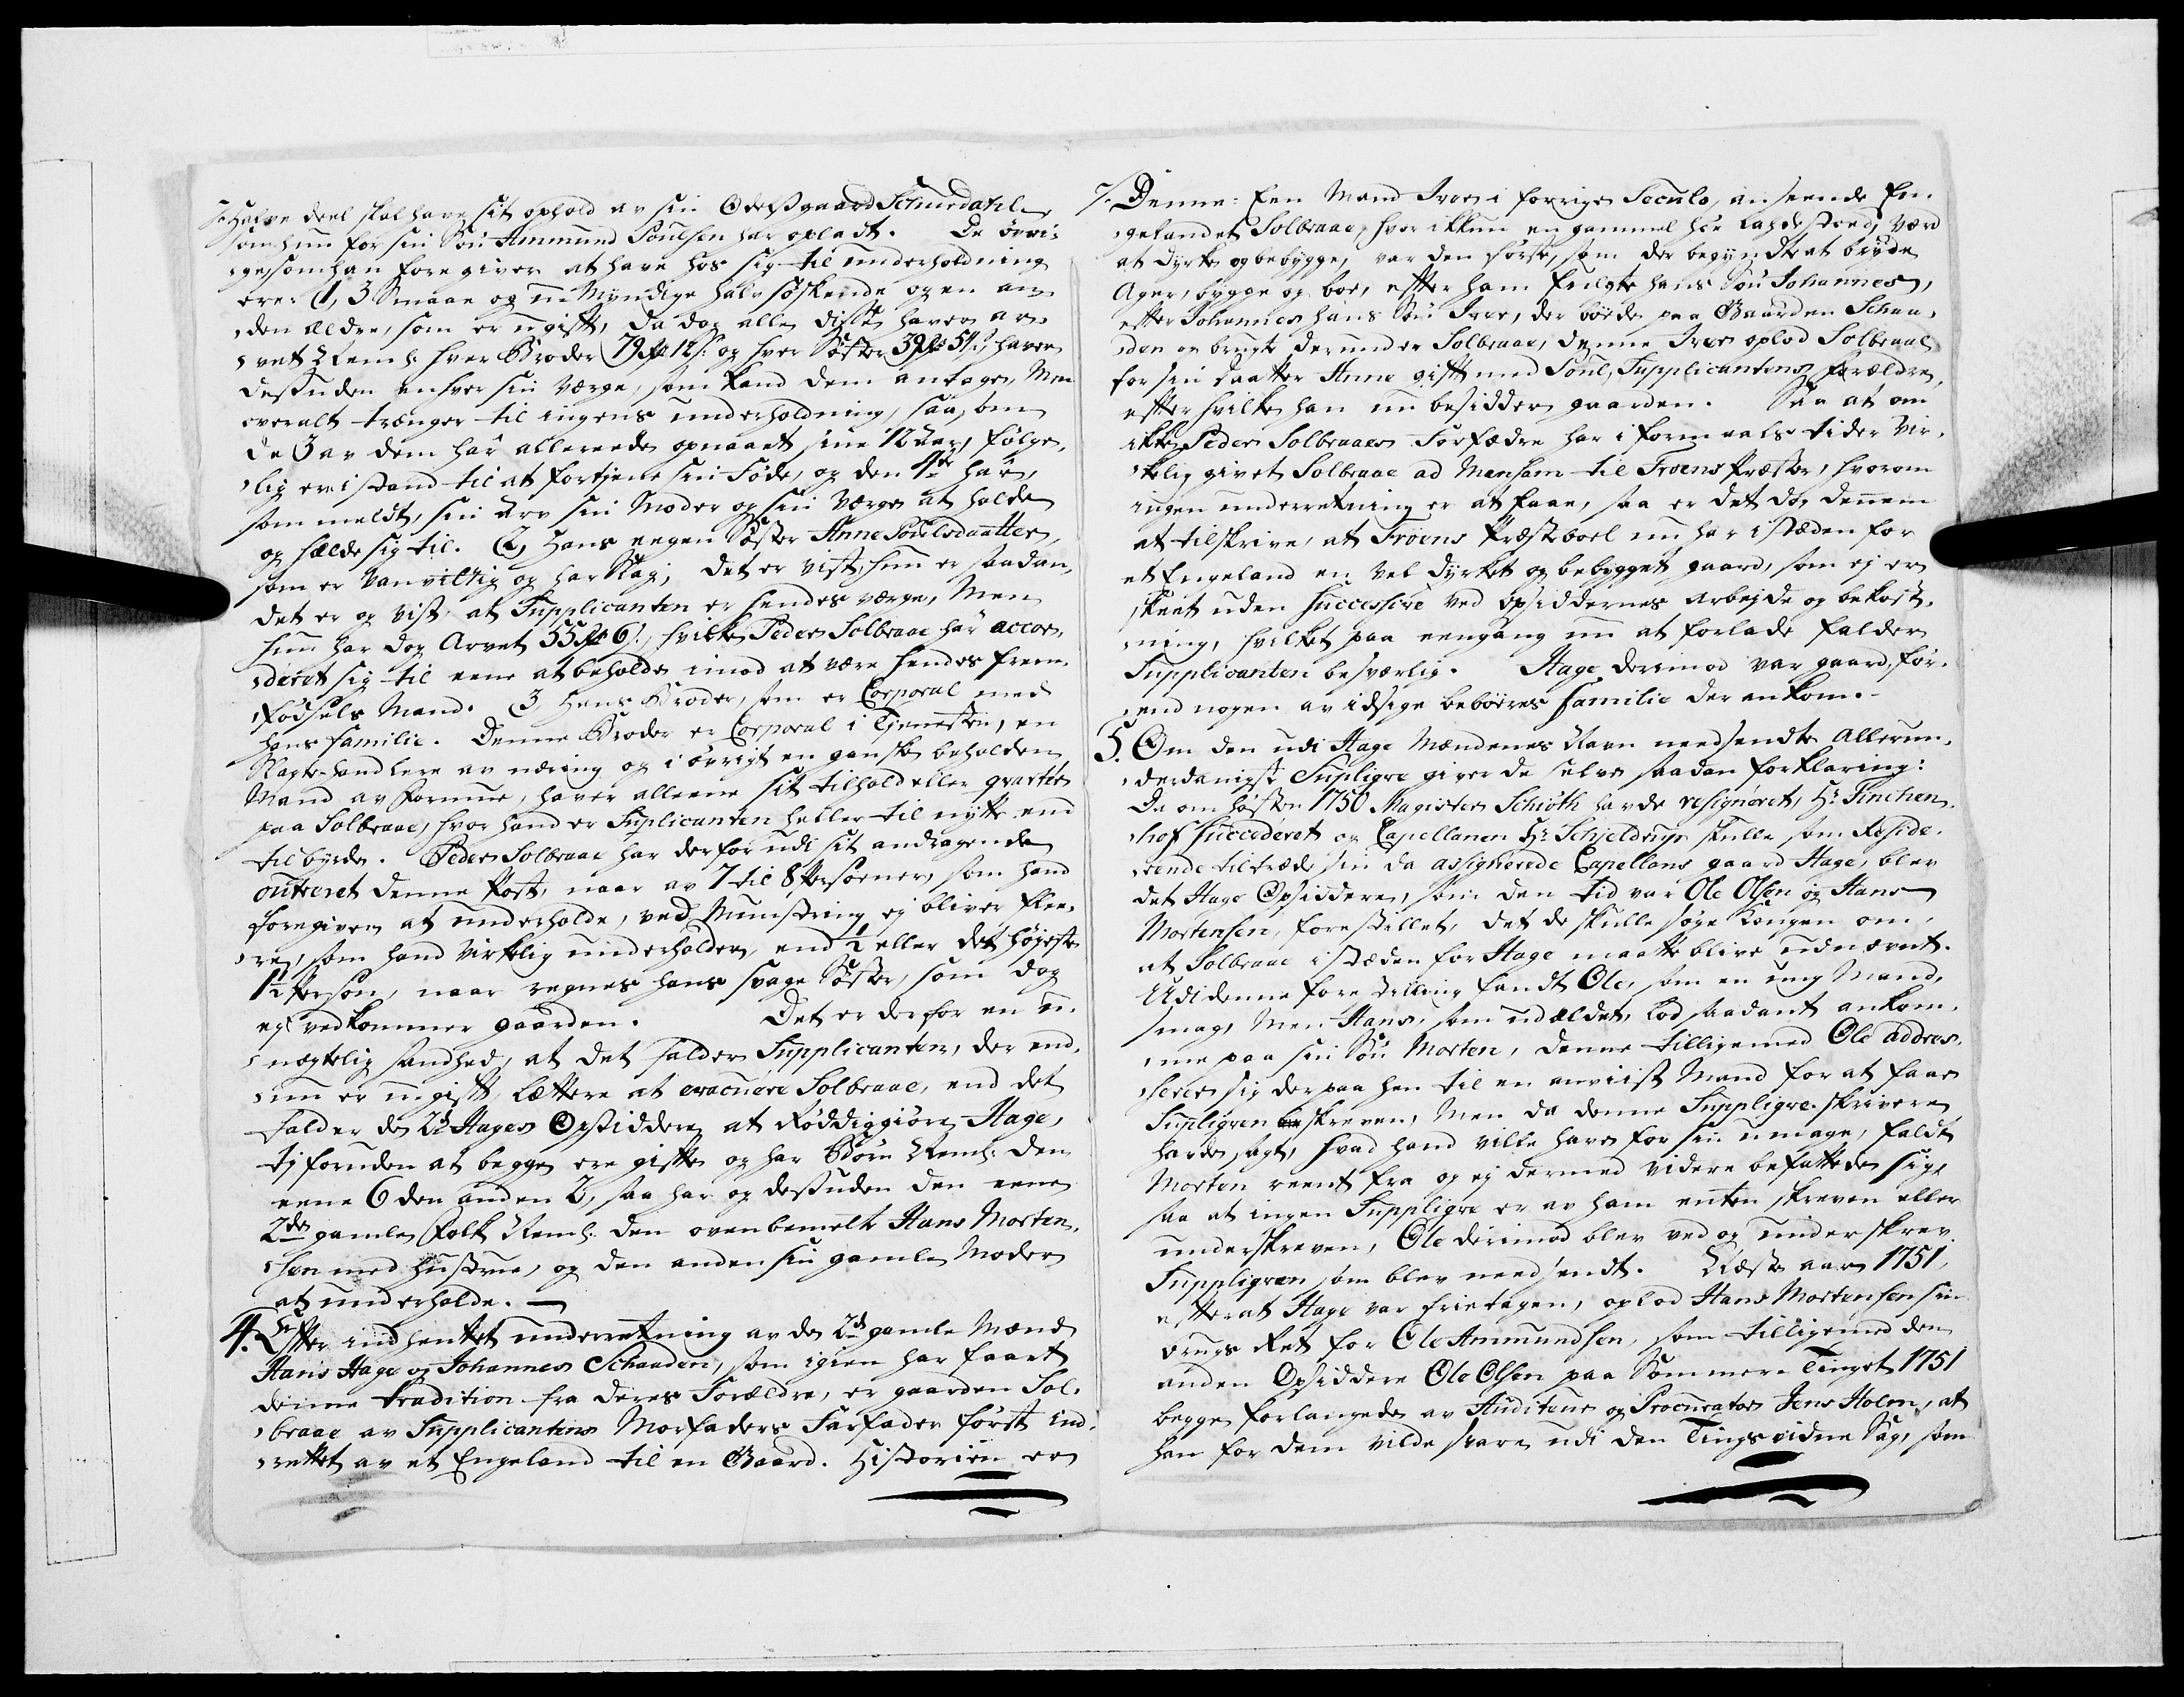 7. halve deel skal have sit ophold av sin Odelsgaard Schurdahl
som hun for sin Søn Ammund Poulsen har opladt. De øvri-
ge som han foregiver at have hos sig til underholdning
ere: 1, 3 Smaae og u-Myndige halv søskende og en an-
den ældre, som er ugift, da dog alle disse haver ar-
vet Neml: hver Broder 79 rd 12 s. og hver Søster 39 rd 54 s, haver
desuden enhver sin værge, som kand dem antage, Men
overalt trænger til ingens underholdning, saasom
de 3 av dem har allereede opnaaet sine 12 Aar, følge-
lig ere i stand til at fortjene sin føde, og den 4de har,
som meldt, sin Arv sin Moder og sin værge at holde
og hælde sig til. 2, Hans eegen Søster Anne Poulsdaatter,
som er vanvittig og har Slag; det er vist, hun er saadan,
det er og vist at Supplicanten er hendes værge, Men
hun har dog Arvet 55 rd 6 s., hvilke Peder Solbraae har accor-
deret sig til eene at beholde imod at være hendes frem-
fødsels Mand. 3 Hans Broder, som er Corporal med
hans familie. Denne Broder er Corporal i Tjenesten, en
Slagtehandlere av næring og i øvrigt en ganske beholden
Mand av formue, haver alleene sit tilhold eller qvarteer
paa Solbraae, hvor hand er Suplicanten heller til nytte end
til byrde. Peder Solbraae har derfor udi sit andragende
outreret denne Post, naar av 7 til 8 Persoener, som hand
foregiver at underholde, ved Munstring ej bliver flee-
re, som hand virkelig underholder, end ½ eller det høyeste
1½ Person, naar regnes hans svage Søster, som dog
ej vedkommer gaarden. Det er derfor en u-
nægtelig sandhed, at det falder Supplicanten, der end-
nu er u-gift, lættere at evacuere Solbraae, end det
falder de 2de Hages Opsiddere at Røddiggiøre Hage,
tj foruden at begge ere gifte og har Børn Neml: den
eene 6 den anden 2, saa har og desuden den eene
2de gamle folk Neml: den ovenbemelte Hans Morten-
sen med hustrue, og den anden sin gamle Moder
at underholde. —
4. Efter indhentet underretning av de 2de gamle Mænd
Hans Hage og Johannes Schaaden, som igien har faaet
denne tradition fra deres Forældre, er gaarden Sol-
braae av Supplicantens Morfaders Farfader først ind-
rettet av et Engeland til en Gaard. Historien er
7. Denne: Een Mand Iver i forrige Seculo, anseende En-
gelandet Solbraae, hvor ikkun en gammel Høe Lahde stoed, værd
at dyrke og bebygge, var den første, som der begyndte at bryde
Ager, bygge og boe, efter ham fulgte hans Søn Johannes,
efter Johannes hans Søn Iver, der boede paa Gaarden Schaa-
den og brugte derunder Solbraae, denne Iver oplod Solbraae
for sin daatter Anne gift med Poul, Supplicantens forældre,
efter hvilke han nu besidder gaarden. Saa at om
ikke Peder Solbraaes Forfædre har i formaals tider vir-
kelig givet Solbraae ad Mensam til Froens Præster, hvorom
ingen underretning er at faae, saa er det dog dennem
at tilskrive, at Froens Præsteboel nu har i stæden for
et Engeland en vel dyrket og bebygget gaard, som ej er
skeet uden successive ved Opsiddernes arbejde og bekost-
ning, hvilket paa eengang nu at forlade falder
Supplicanten besværlig. Hage derimod var gaard, før-
end nogen av idsige beboeres familie der ankom.
5. Om den udi Hage Mændenes Navn needsendte Allerun-
derdanigst Supligve giver de selve saadan forklaring:
Da om høsten 1750 Magister Schiøth havde resigneret, Hr. Finchen-
hof succederet og Capellanen Hr. Schjeldrup skulle som Reside-
rende tiltræde sin da assignerede Capellans gaard Hage, blev
det Hage Opsiddere, som den tid var Ole Olsen og Hans
Mortensen, forestillet, det de skulle søge Kongen om,
at Solbraae i stæden for Hage maatte blive udnævnt.
Udi denne forestilling fandt Ole, som en ung Mand,
smag, Men Hans, som udældet, lod saadant ankom-
me paa sin Søn Morten, denne tilligemed Ole addres-
serer sig derpaa hen til en anviist Mand for at faae
Supligven skreven, Men da denne Suppligve-skrivere
havde sagt, hvad hand ville have for sin umage, faldt
Morten reent fra og ej dermed videre befattede sig,
saa at ingen Suppligve er av ham enten skreven eller
underskreven, Ole derimod blev ved og underskrev
Suppligven som blev needsendt. Næste aar 1751,
efterat Hage var frietagen, oplod Hans Mortensen sin
brugs Ret for Ole Ammundsen, som tilligemed den
anden Opsiddere Ole Olsen paa Sommer-Tinget 1751
begge forlangede av Auditeur og Procurator Jens Holm, at
han for dem vilde svare udi den Tingsvidne Sag, som